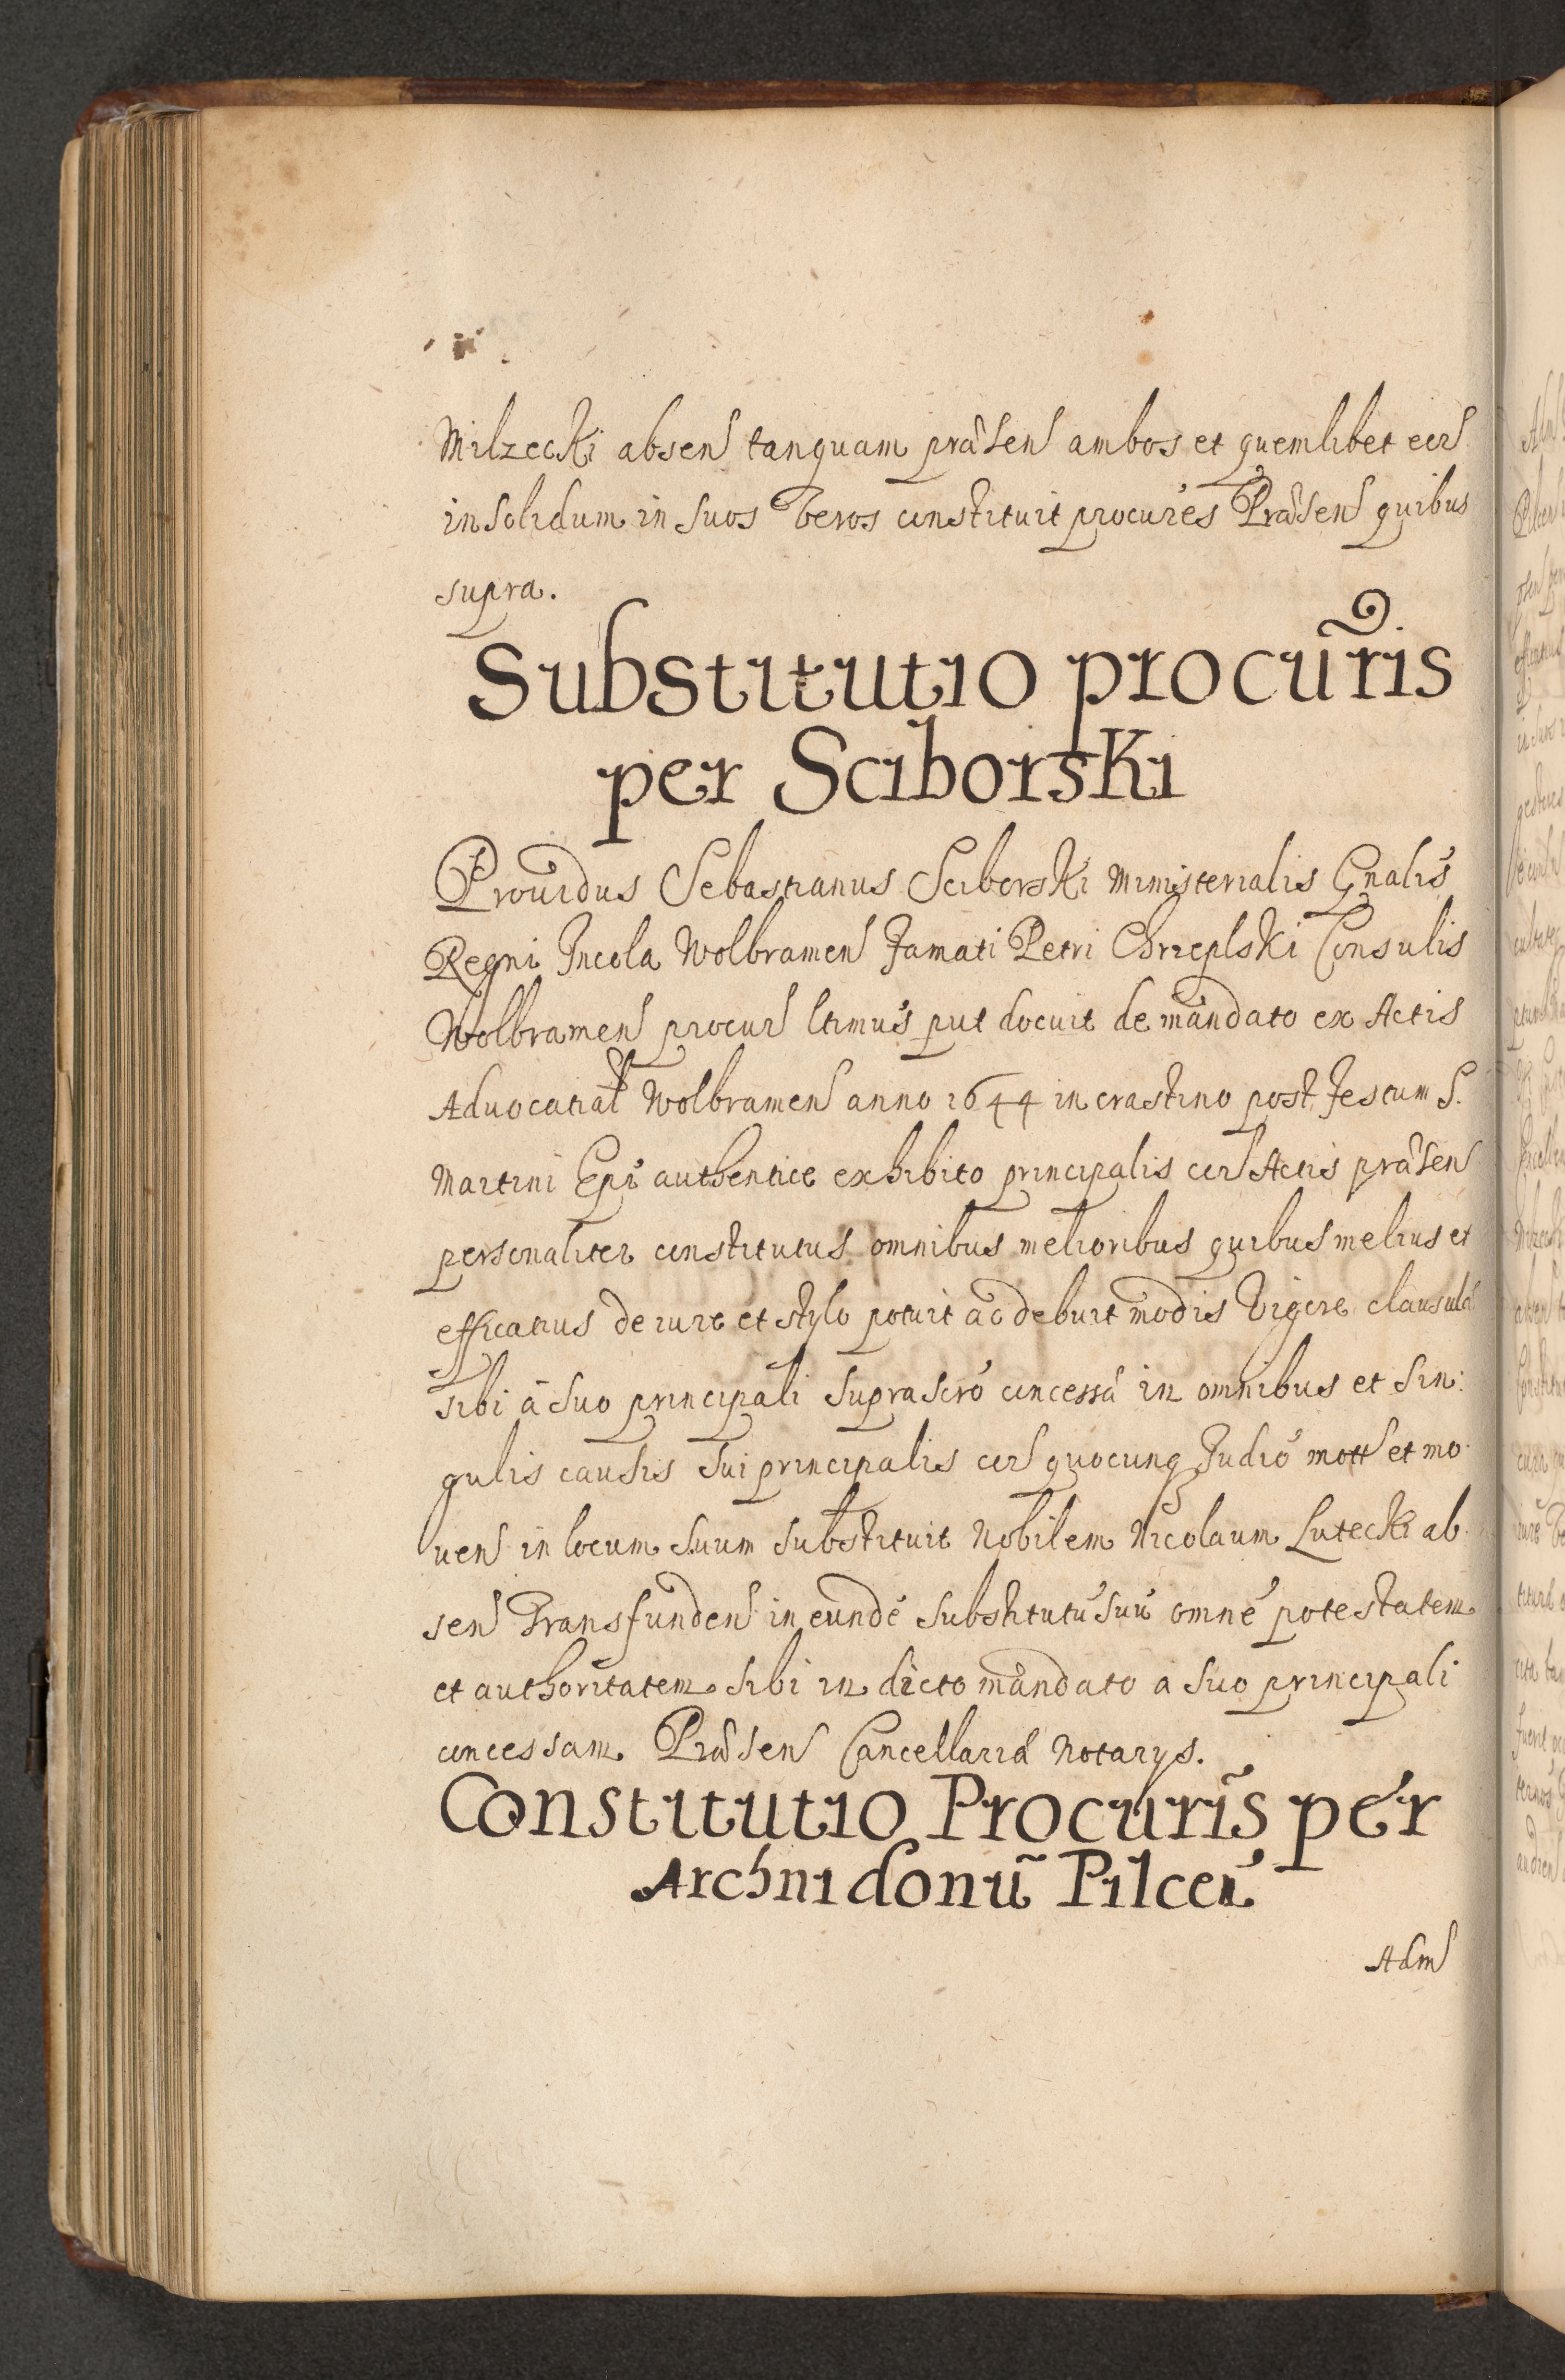 Milzecki absen tanquam prãsen ambos et quemlibet eor
in solidum in suos veros constituit procures Prãsen quibus
supra.
Substitutio procur̃is
per Sciborski
Prouidus Sebastianus Sciborski Ministerialis Gnalis
Regni Incola Wolbramen Famati Petri Chrzeplski Consulis
Wolbramen procur ltimus put docuit de mandato ex Actis
Aduocatial Wolbramen anno 1644 in crastino post Festum S.
Martini Epi authentice exhibito principalis cor Actis prãsen
personaliter constitutus omnibus melioribus quibus melius et
efficatius de iure et stylo potuit ac debuit modis Vigore clausulã
sibi ã suo principali suprascrõ concessã in omnibus et sin:
gulis causis sui principalis cor quocunq Judiõ mott et mo
uen in locum suum substituit Nobilem Nicolaum Lutecki ab
sen Transfunden in eundẽ substitutũ suũ omnẽ potestatem
et authoritatem sibi in dicto mandato a suo principali
concessam Prãsen Cancellariã Notarys.
Constitutio Procuris̃ per
Archni donũ Pilcen
Adm